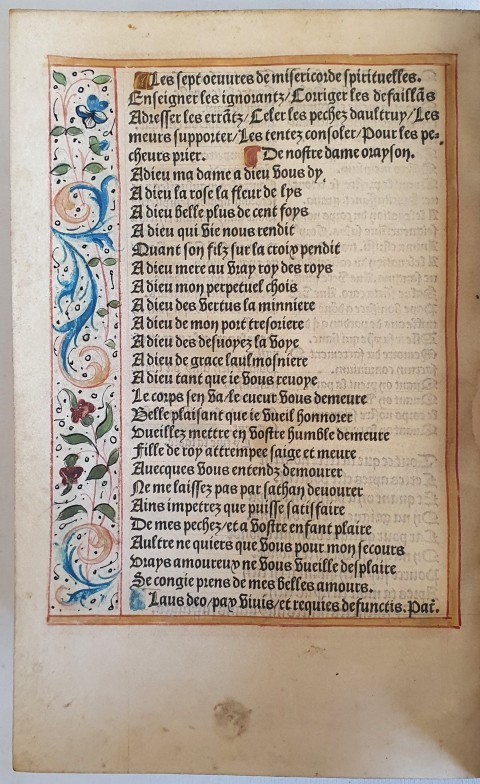 Les sept oeuures de misericorde spirituelles.
Enseigner les ignorantz/Corriger les defaillãs
Adresser les errãtz/Celer les pechez daultruy/Les
meurs supporter/Les tentez consoler/Pour les pe-
cheurs prier. De nostre dame orayson.
Adieu ma dame a dieu vous dy,
A dieu la rose la fleur de lys
A dieu belle plus de cent foys
A dieu qui vie nous rendit
Quant son filz sur la croix pendit
A dieu mere au vray roy des roys
A dieu mon perpetuel chois
A dieu des vertus la minniere
A dieu de mon port tresoriere
A dieu des desuoyez la voye
A dieu de grace laulmosniere
A dieu tant que ie vous reuoye
Le corps sen va/le cueur vous demeure
Belle plaisant que ie vueil honnorer
vueillez mettre en vostre humble demeure
Fille de roy attrempee saige et meure
Auecques vous entendz demourer
Ne me laissez pas par sathan deuourer
Ains impetrez que puisse satisfaire
De mes pechez/et a vostre enfant plaire
Aultre ne quiers que vous pour mon secours
vrays amoureux ne vous vueille desplaire
Se congie prens de mes belles amours.
Laus deo/pax viuis/et requies defunctis. Pat̃.